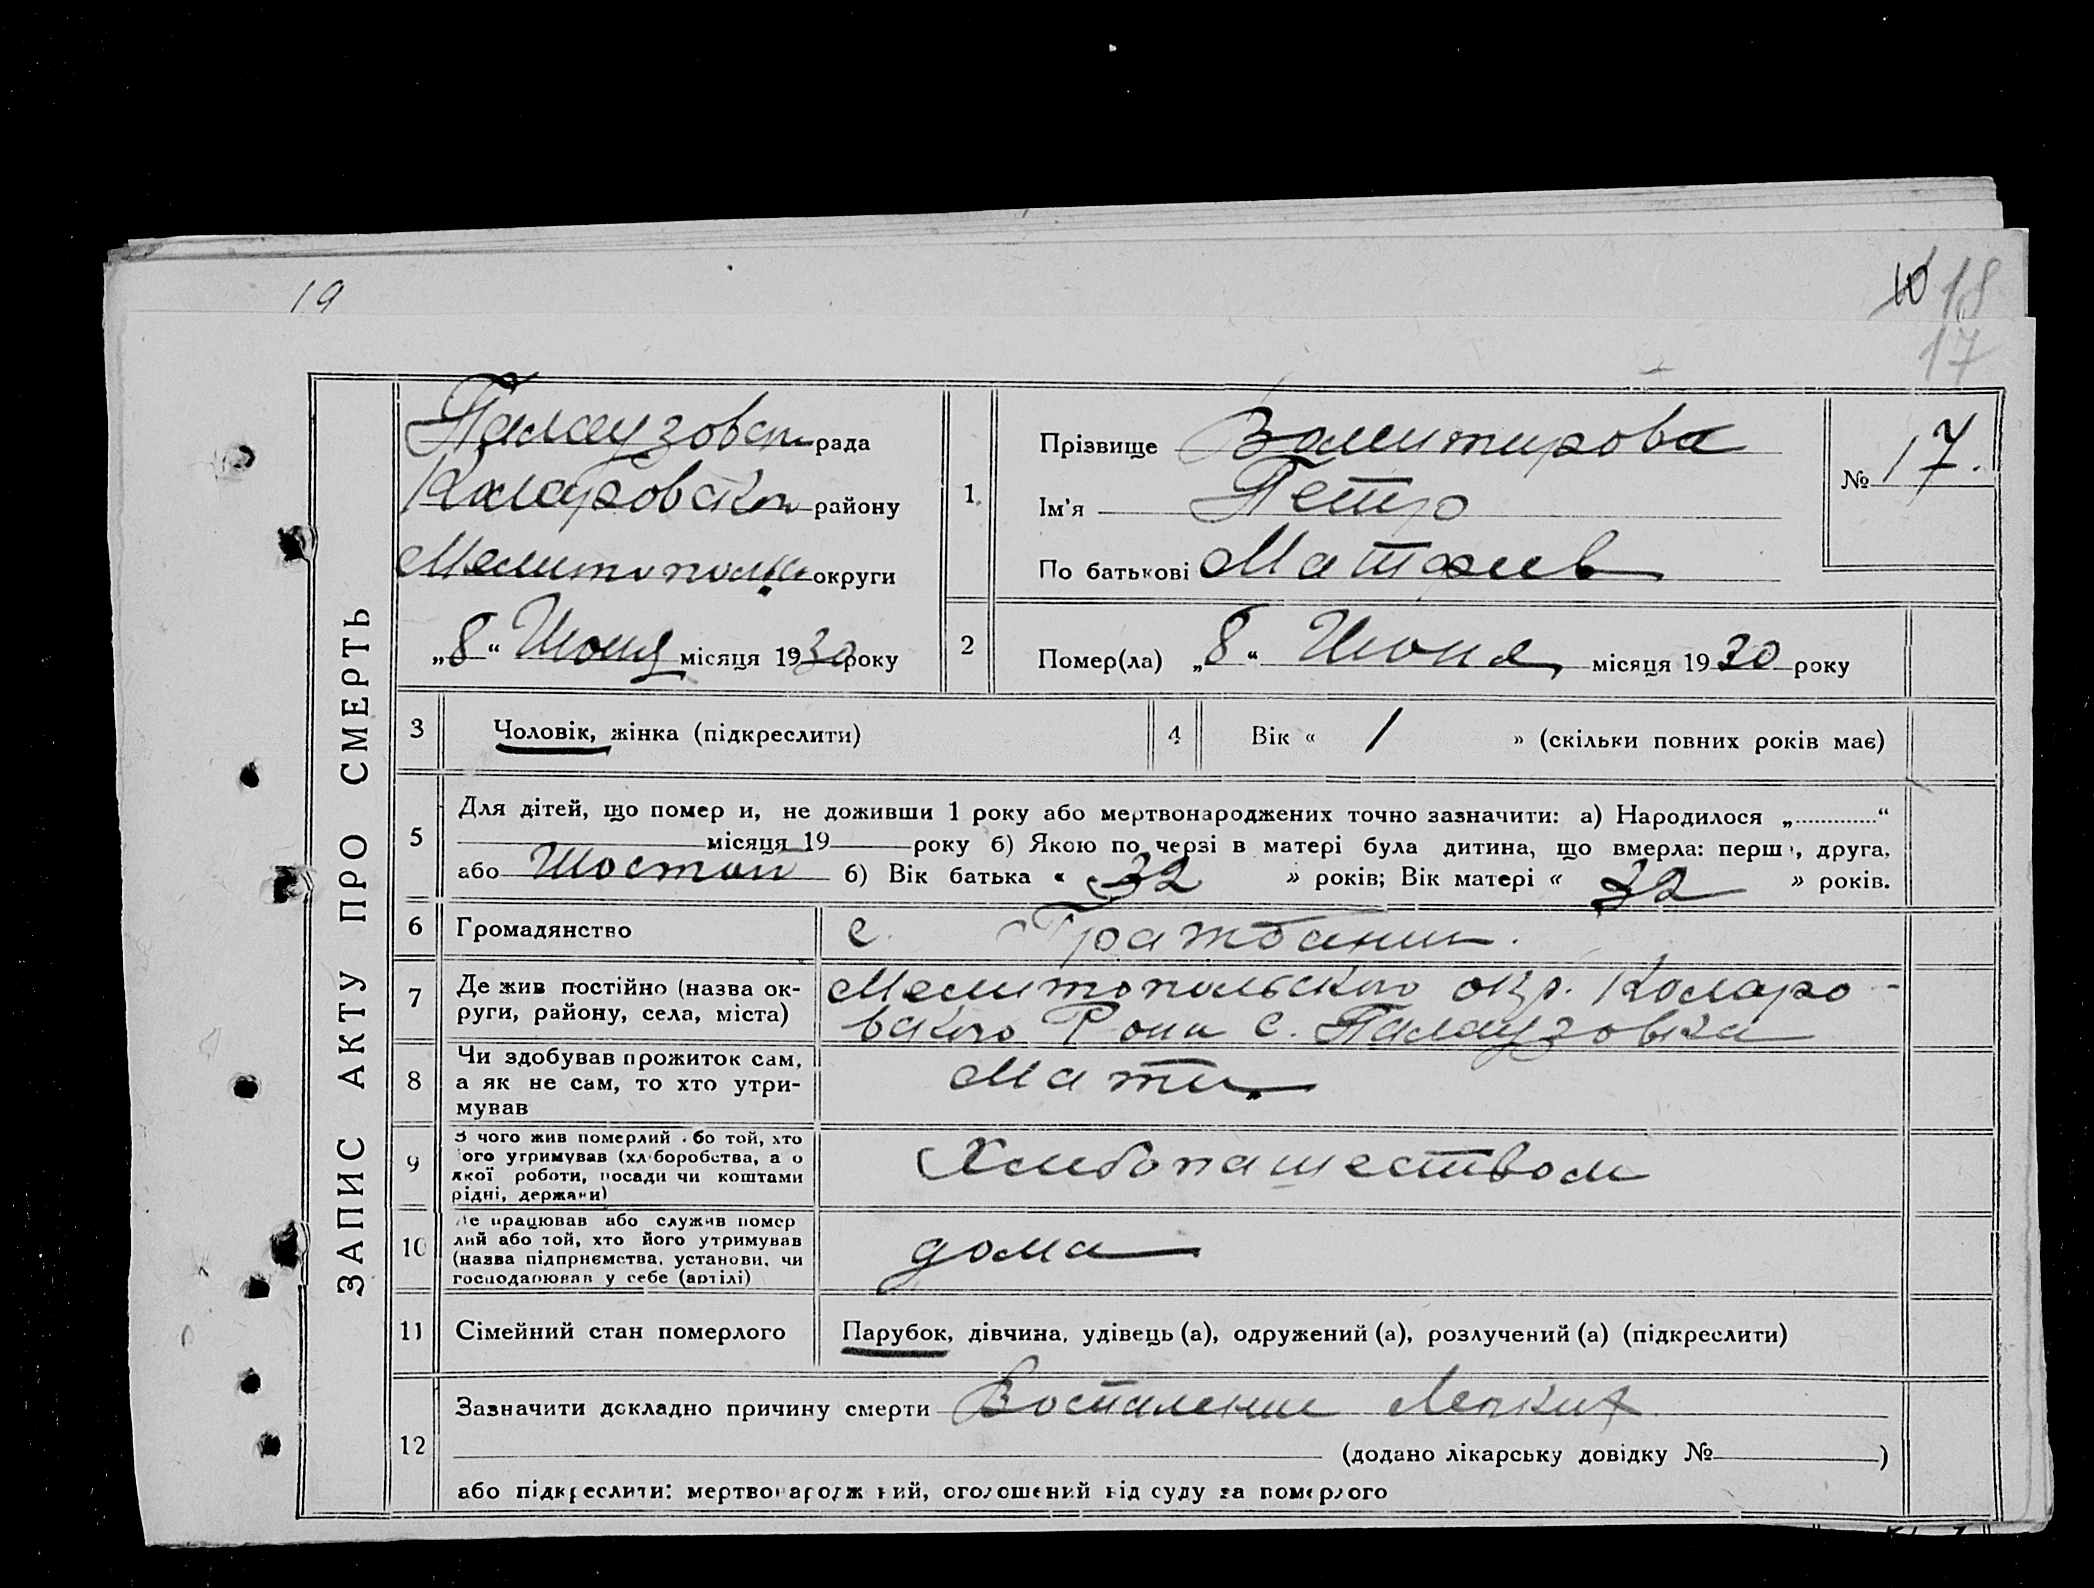 19
10 18
17
ЗАПИС АКТУ ПРО СМЕРТЬ
Палаузовск рада
Коларовского району
Мелитопольс округи
„8“ Июня місяця 1930 року
1. Прізвище Валитирова
Ім'я Петр
По батькові Матфиев
№ 17.
2 Помер(ла) „8“ Июня місяця 1930 року
3 Чоловік, жінка (підкреслити)
4 Вік « 1 » (скільки повних років має)
5 Для дітей, що помер и, не доживши 1 року або мертвонароджених точно зазначити: а) Народилося „ “
місяця 19 року б) Якою по черзі в матері була дитина, що вмерла: перш , друга,
або Шостой б) Вік батька « 32 » років; Вік матері « 32 » років.
6 Громадянство с. Гражбании.
7 Де жив постійно (назва ок-
руги, району, села, міста)
Мелитопольского окр. Коларо-
вского Рона с. Палаузовка
8 Чи здобував прожиток сам,
а як не сам, то хто утри-
мував
Мати
9 З чого жив померлий бо той, хто
ого утримував (хл боробства, а о
якої роботи, посади чи коштами
рідні, держави)
Хлибопашеством
10 Де працював або служив помер
лий або той, хто його утримував
(назва підприємства, установи, чи
господарював у себе (артілі)
дома
11 Сімейний стан померлого Парубок, дівчина, удівець (а), одружений (а), розлучений (а) (підкреслити)
12 Зазначити докладно причину смерти Воспаление Легких
(додано лікарську довідку № )
або підкреслити: мертвонародж ний, оголошений від суду за померлого